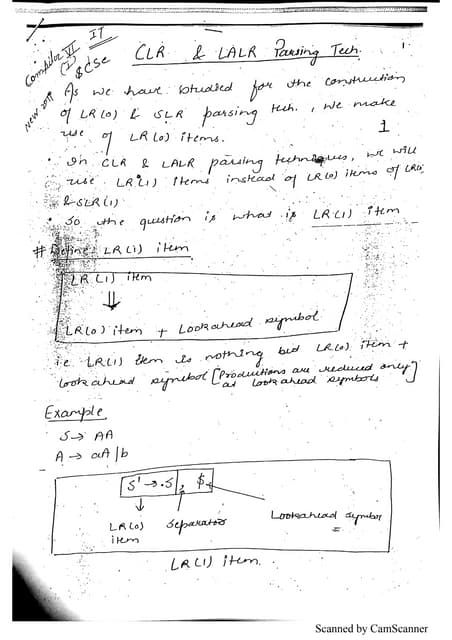 IT
Compiler VI
(7) & CSE
New 2019
CLR & LALR Parsing Tech.
1
As we have studied for the construction
of LR(0) & SLR parsing tech., we make
use of LR(0) items.
1
• In CLR & LALR parsing techniques, we will
use LR(1) items instead of LR(0) items of LR(0)
& SLR(1)
• So the question is what is LR(1) item
# Define LR(1) item
LR(1) item
⇓
LR(0) item + Lookahead symbol
i.e LR(1) item is nothing but LR(0) item +
look ahead symbol [Productions are reduced only
at look ahead symbols]
Example
S → AA
A → aA | b
S' → .S , $
LR(0) item
Separator
Lookahead symbol
LR(1) item.
Scanned by CamScanner